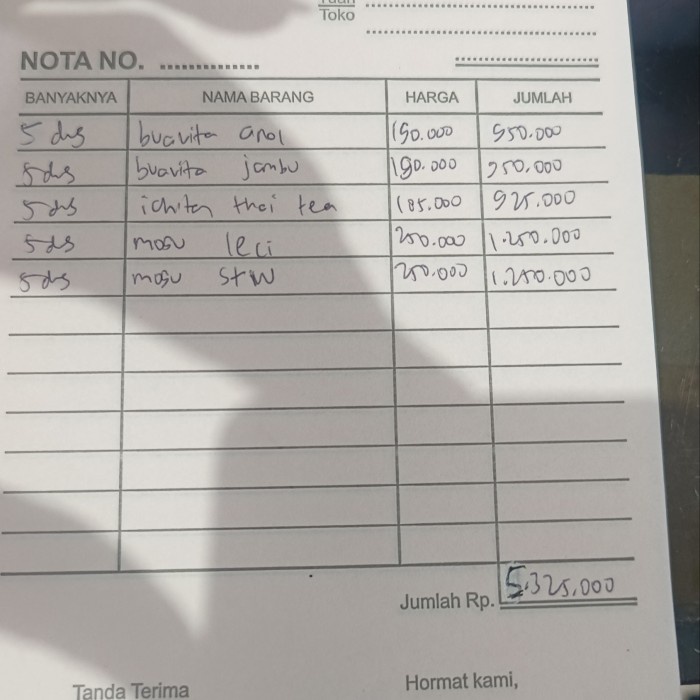 Tuan
Toko
NOTA NO. ..............
BANYAKNYA NAMA BARANG HARGA JUMLAH
5 dus buavita anol 190.000 950.000
5 dus buavita jambu 190.000 950.000
5 dus ichitan thai tea 185.000 925.000
5 dus mogu leci 250.000 1.250.000
5 dus mogu STW 250.000 1.250.000
Jumlah Rp. 5.325.000
Tanda Terima Hormat kami,